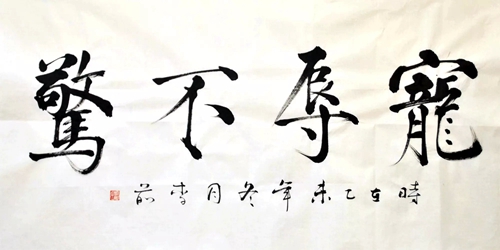 寵辱不驚
時在乙未年冬月李前